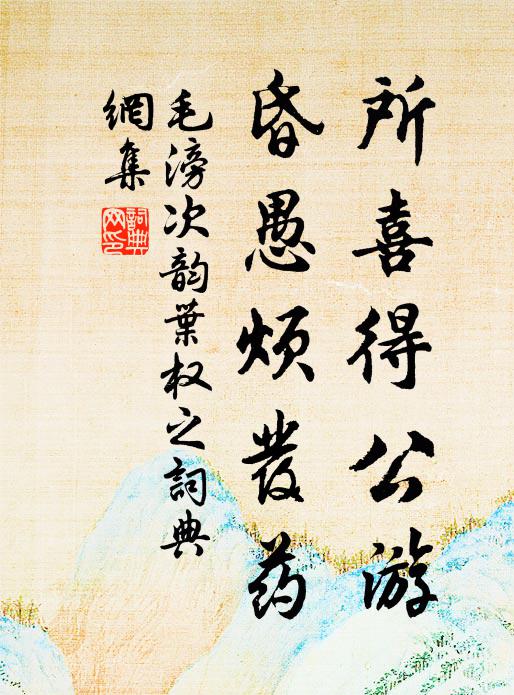 所喜得公游
昏愚烦发药
毛滂次韵葉权之词典
網集
词典网印